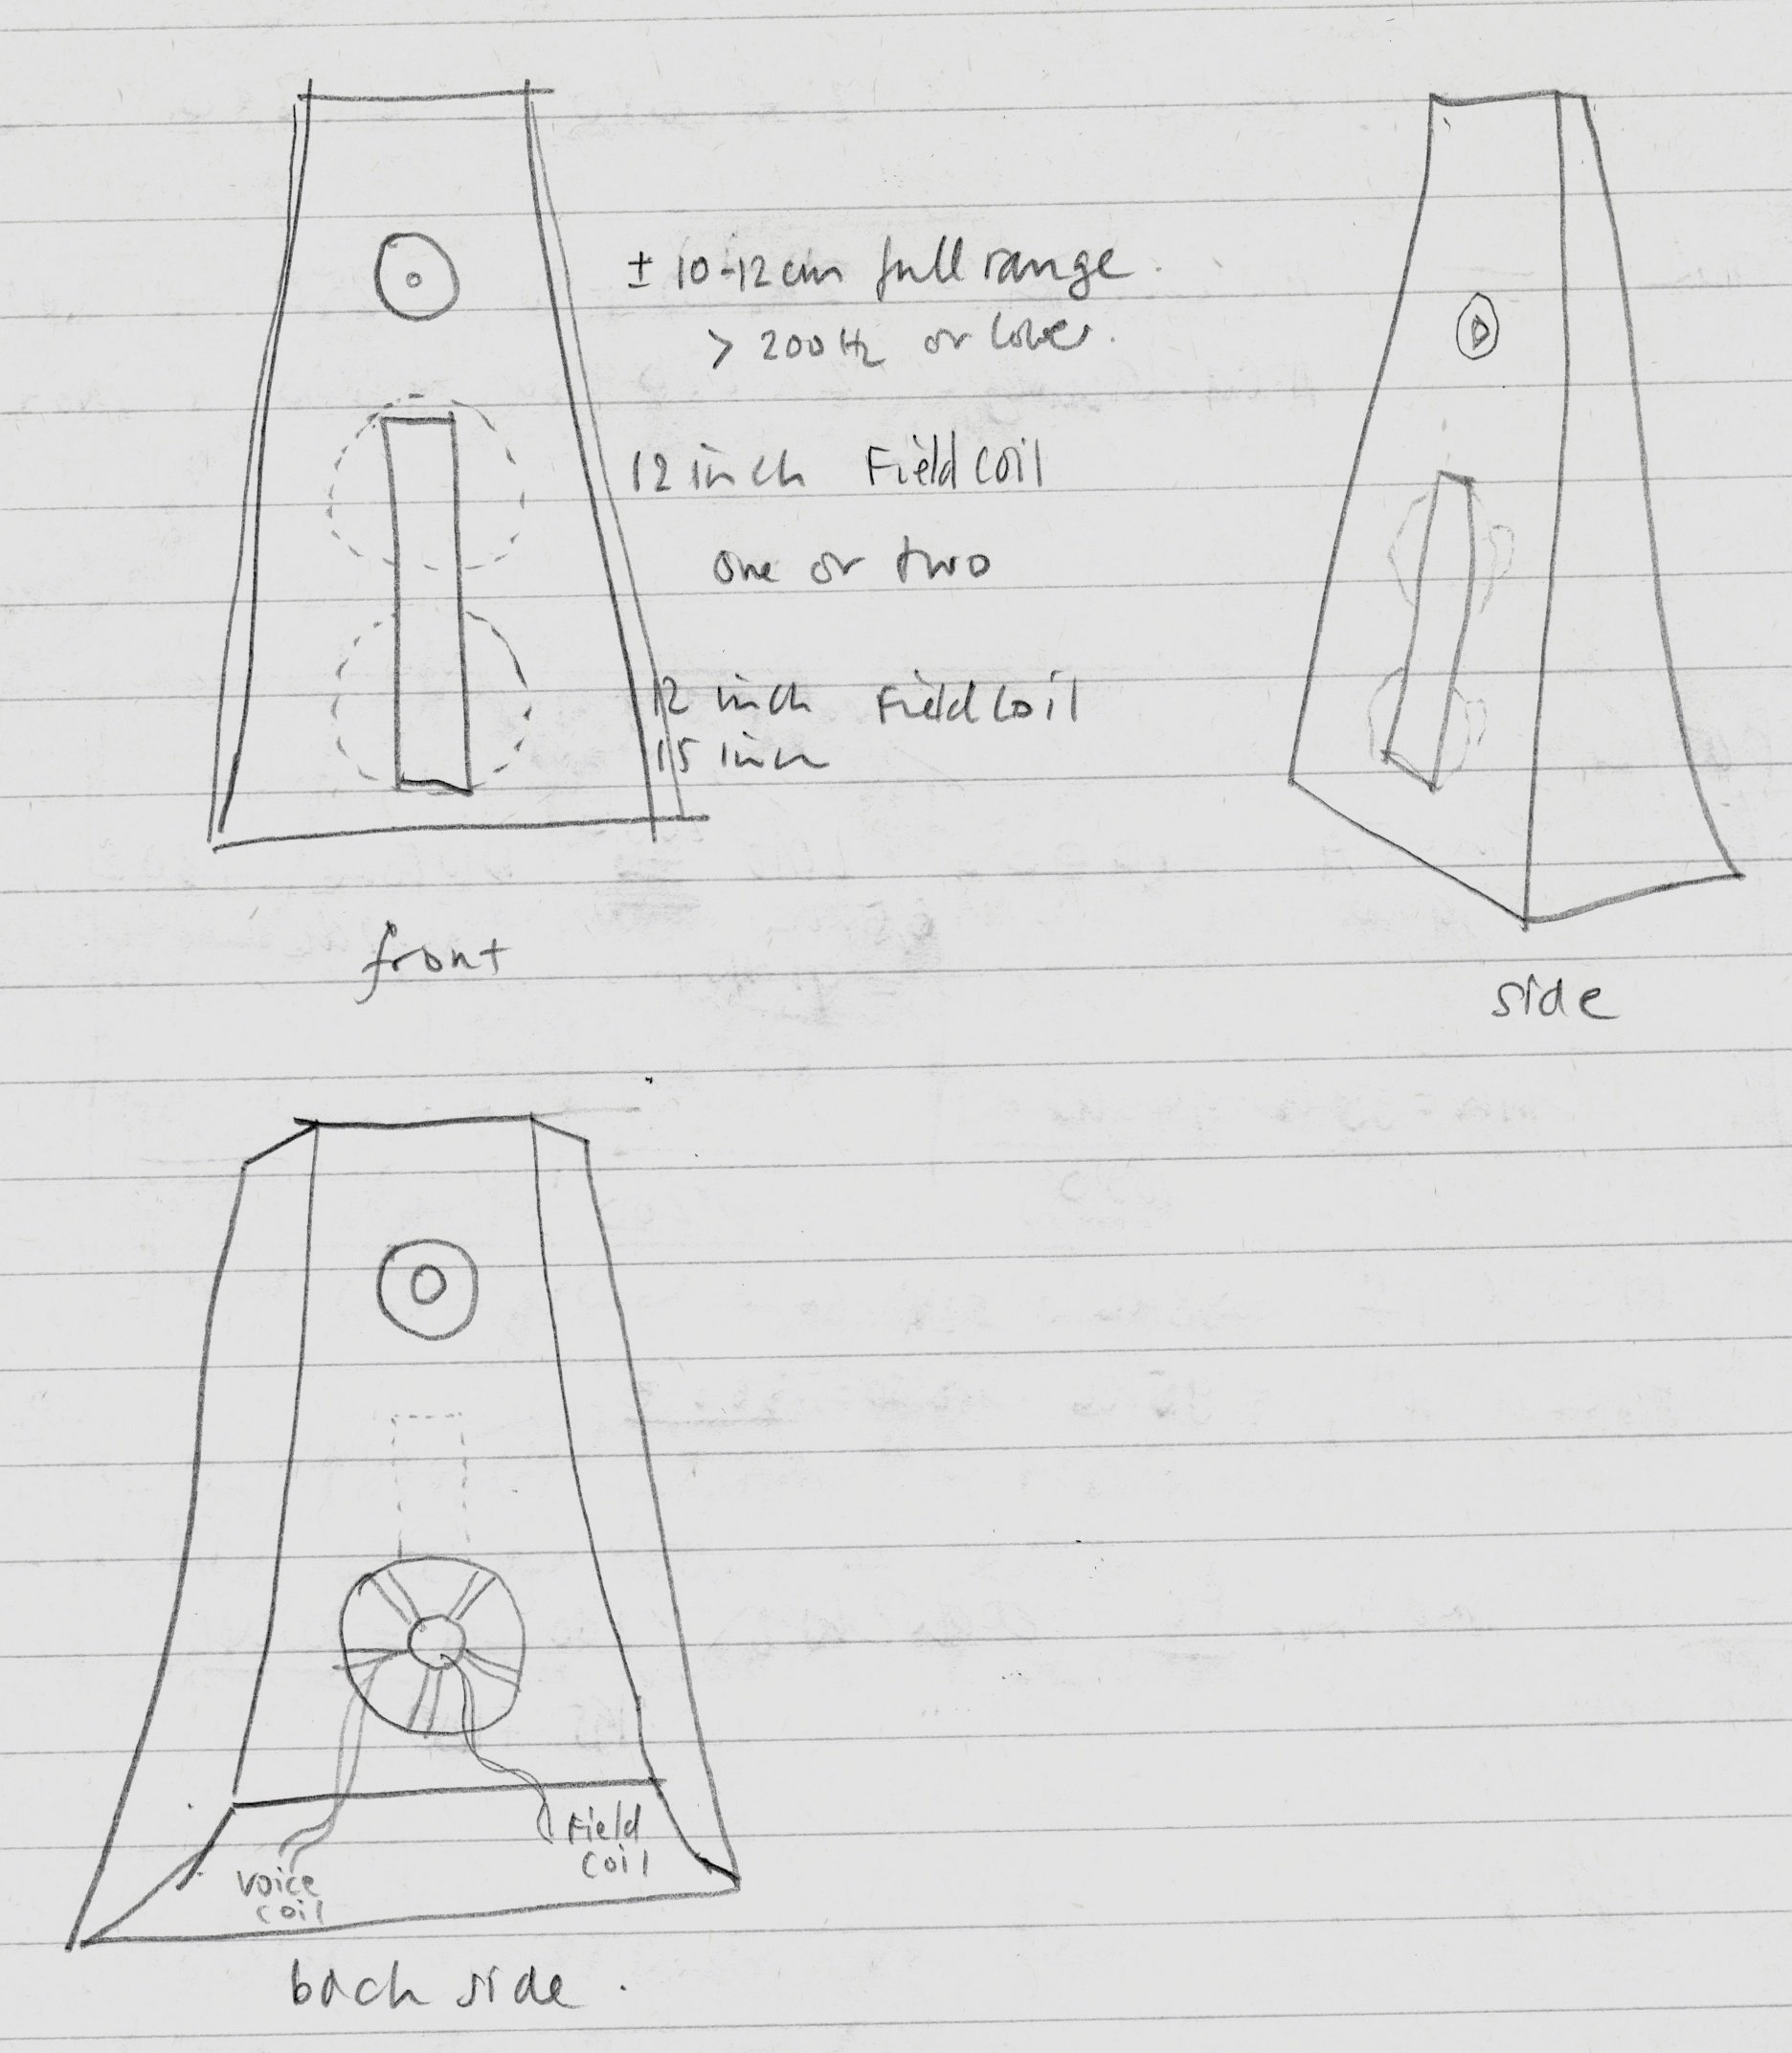 ± 10-12 cm full range.
> 200 Hz or lower.
12 inch Field coil
one or two
12 inch Field coil
15 inch
front
side
Field
coil
voice
coil
back side.